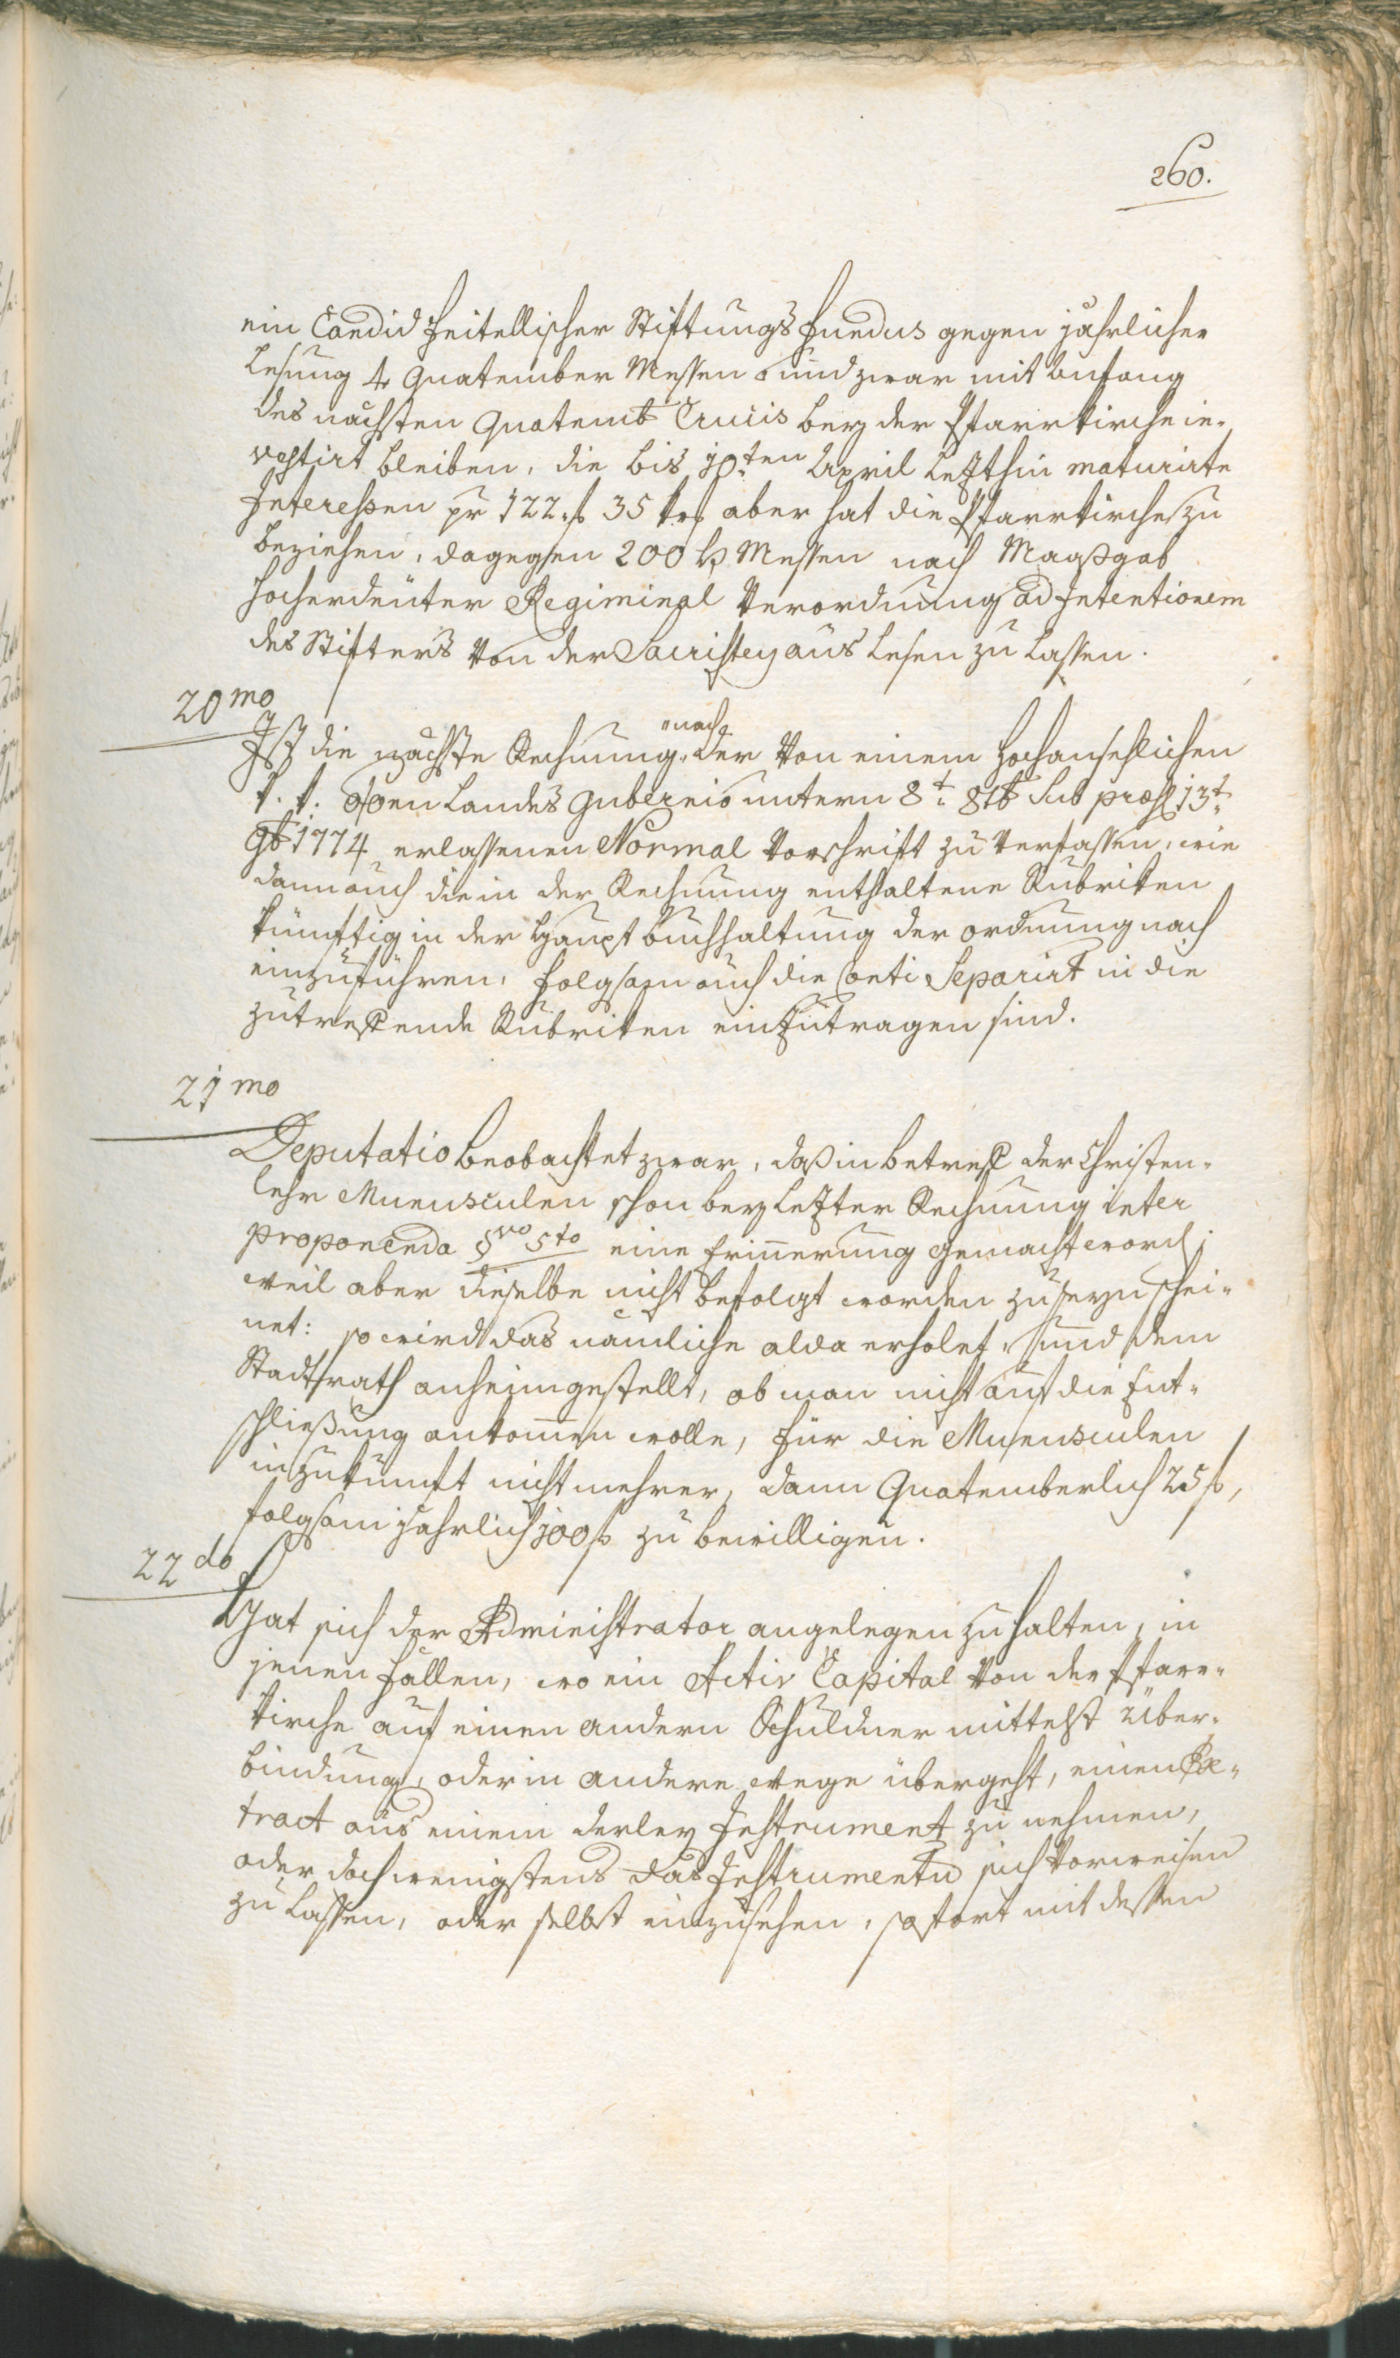 260.
ein Candid Zeitellischer Stiftungs Fundus gegen jährlicher
Lesung 4 Quatember Messen und zwar mit Anfang
des nächsten Quatemb Crucis bey der Pfarrkirche in-
vestirt bleiben, die bis 10ten April leßthin maturirte
Interessen pr 122 f 35 kr aber hat die Pfarrkirche zu
beziehen, dagegen 200 h. Messen nach Maaßgab
hocherdeuter Regiminal Verordnung ad Intentionem
des Stifters von der Sacristey aus lesen zu lassen.
20mo
Ist die nächste Rechnung nach der von einem Hochansehlichen
k. k. OÖen Landes Gubernio unterm 8t 8tb sub praes 13t
9b 1774 erlassenen Normal Vorschrift zu verfassen, wie
dann auch die in der Rechnung enthaltene Rubriken
künftig in der Haupt Buchhaltung der ordnung nach
einzuführen, folgsam auch die Conti Separirt in die
zutreffende Rubriken einzutragen sind.
21mo
Deputatio beobachtet zwar, daß in betreff der Christen-
lehr Munusculen schon bey letzter Rechnung inter
proponenda §vo 5to eine Erinnerung gemacht word;
weil aber dieselbe nicht befolgt worden zu seyn schei-
net: so wird das nämliche alda erholet, und dem
Stadtrath anheimgestellt, ob man nicht auf die Ent-
schließung ankomen wolle, für die Munusculen
in zukunft nicht mehrer, dann Quatemberlich 25 f,
folgsam jährlich 100 f zu bewilligen.
22do
Hat sich der Administrator angelegen zu halten, in
jenen Fällen, wo ein Activ Capital von der Pfarr-
kirche auf einen andern Schuldner mittelst Über-
bindung, oder in andere wege übergeht, einen Ex-
tract aus einem derley Instrument zu nehmen,
oder doch wenigstens das Instrumentu sich vorweisen
zu lassen, oder selbst einzusehen, sofort mit dessen